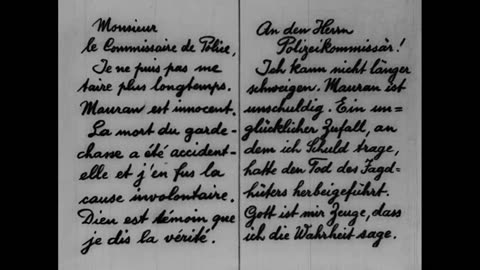 Monsieur
le Commissaire de Police,
Je ne puis pas me
taire plus longtemps.
Mauran est innocent.
La mort du garde-
chasse a été accident-
elle et j'en fus la
cause involontaire.
Dieu est témoin que
je dis la vérité.
An den Herrn
Polizeikommissär!
Ich kann nicht länger
schweigen. Mauran ist
unschuldig. Ein un=
glücklicher Zufall, an
dem ich Schuld trage,
hatte den Tod des Jagd=
hüters herbeigeführt.
Gott ist mir Zeuge, dass
ich die Wahrheit sage.